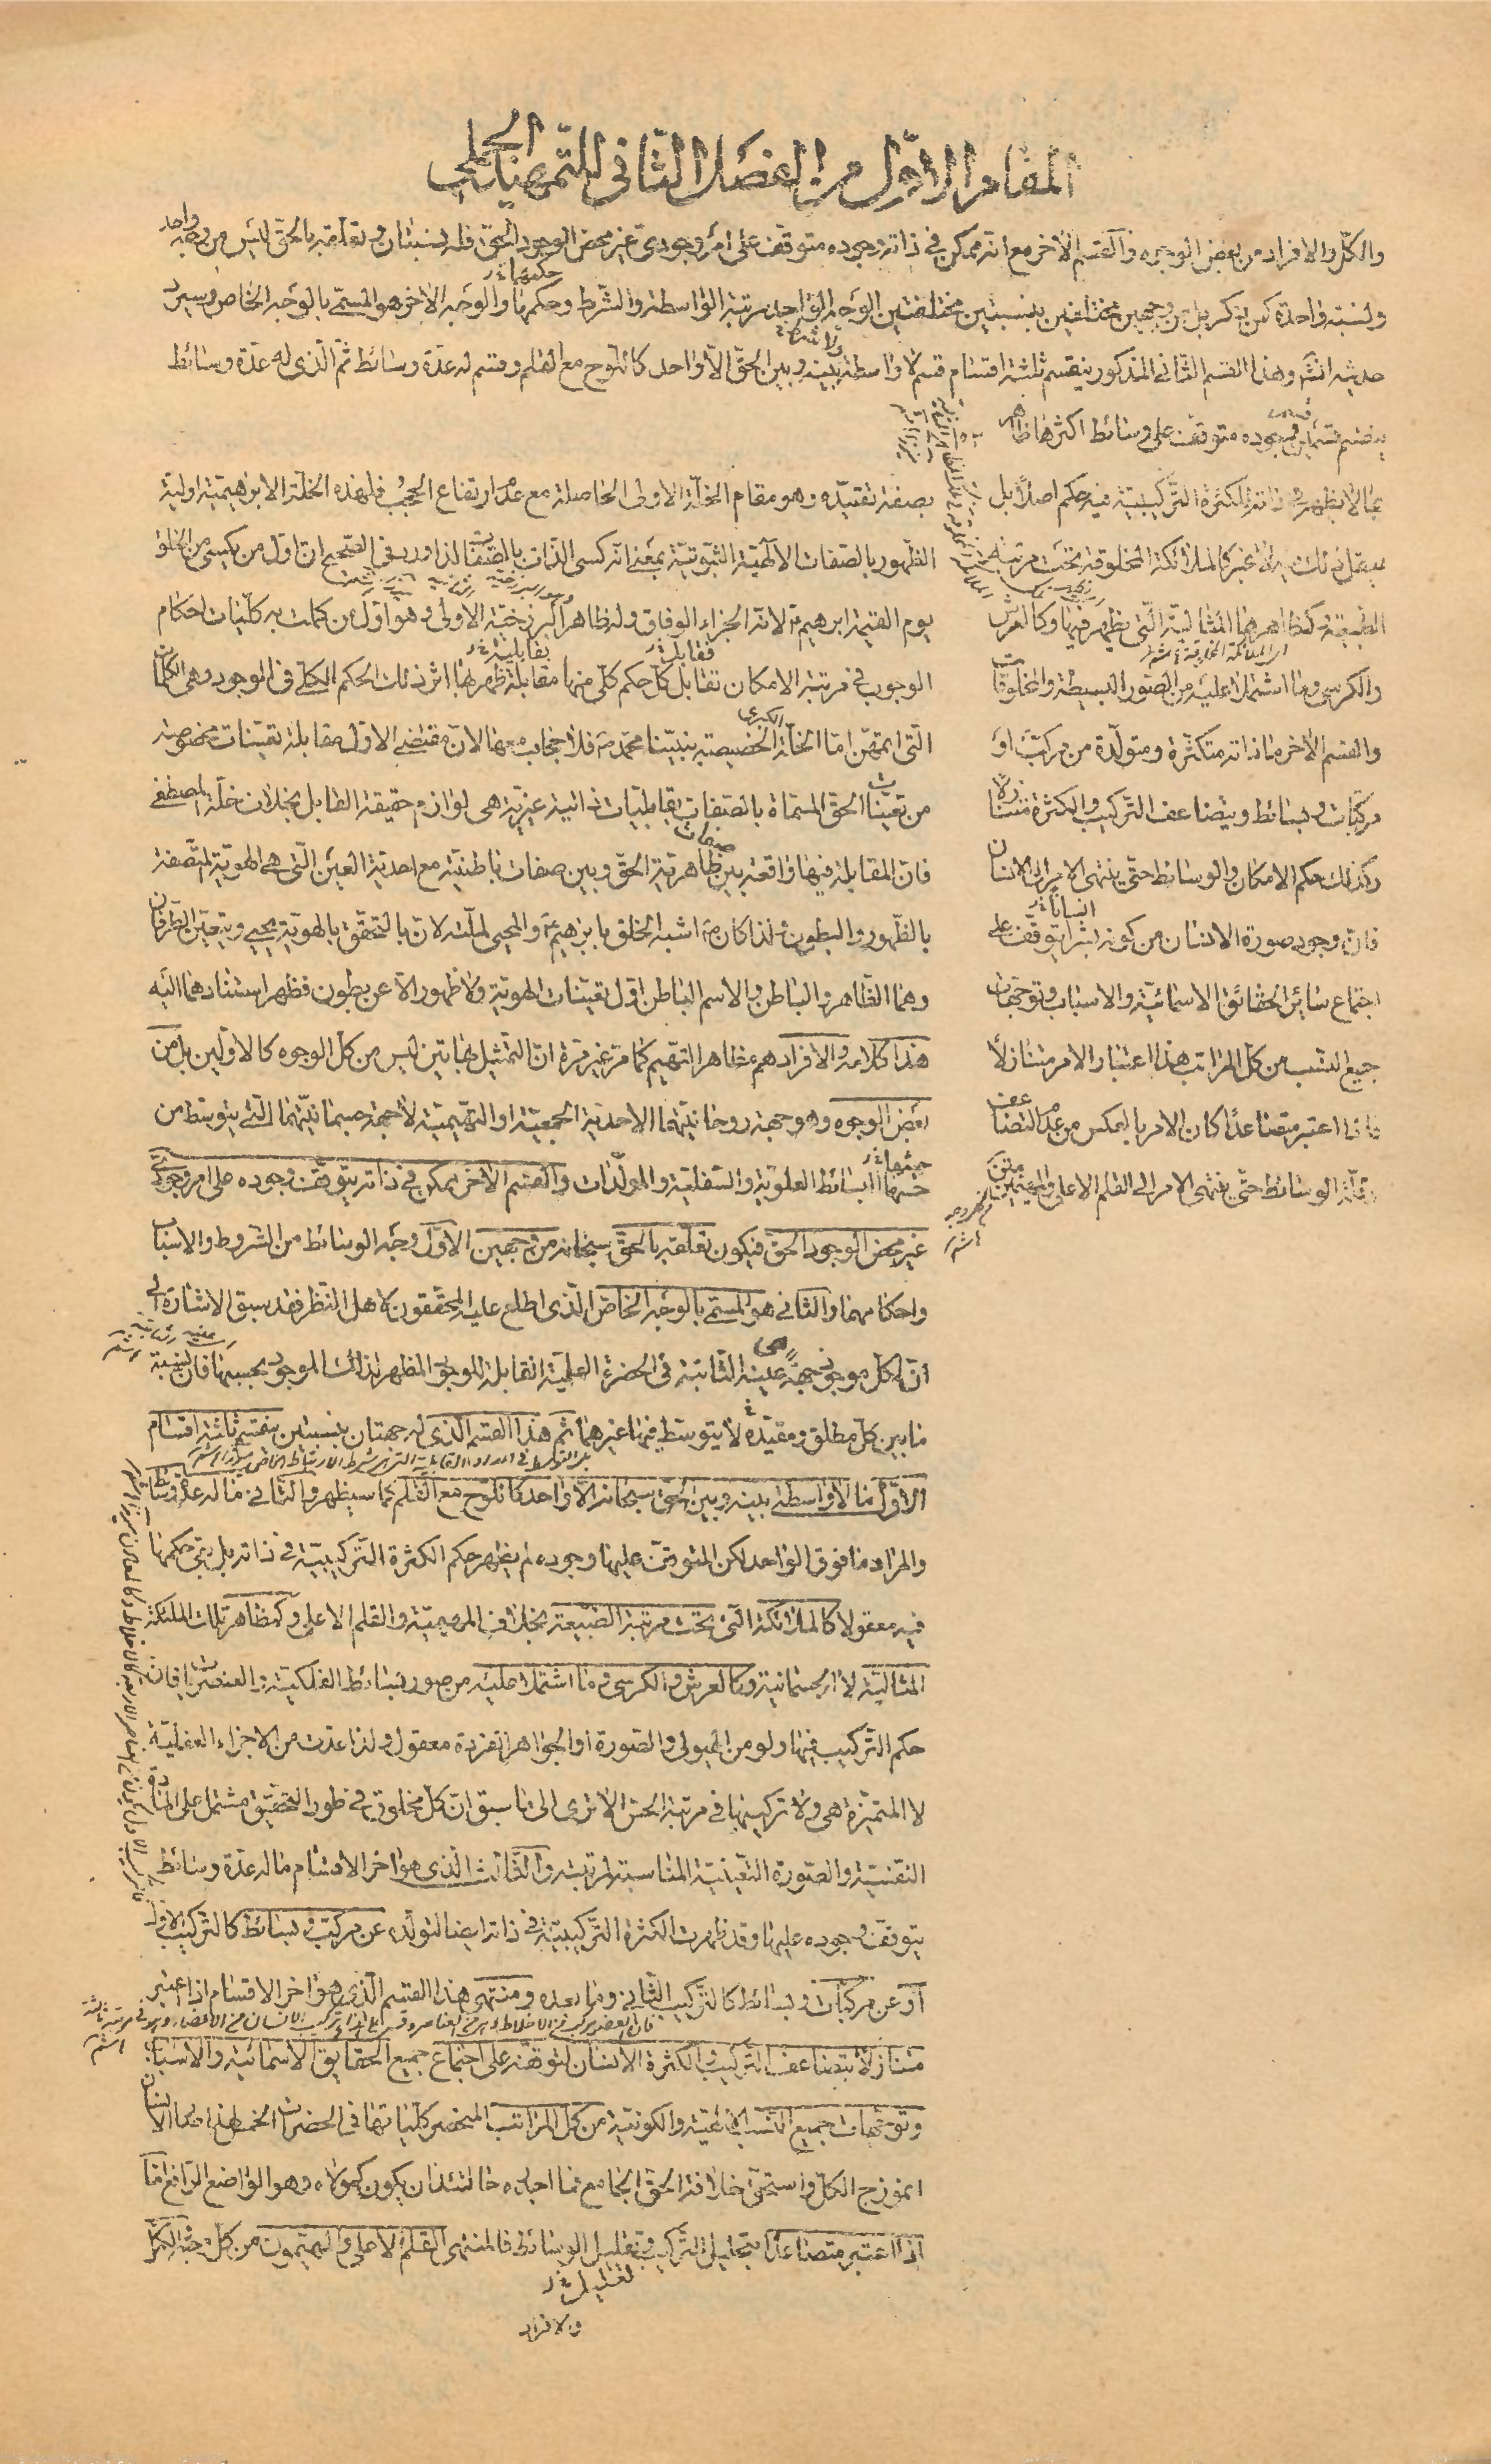 المقام الاوّل من الفصل الثانى للتمهيد الجملى
والكلّ والافراد من بعض الوجوه والقسم الاخر مع انه ممكن فى ذاته وجوده متوقف على امر وجودى غير محض الوجود الحقّ فله نسبتان وتعلقه بالحقّ ليس من وجه واحد
ونسبته واحدة كمن ذكر بل من وجهين مختلفين بنسبتين مختلفتين الوجه الواحد مرتبة الواسطة والشرط وحكمها والوجه الاخر هو المسمّى بالوجه الخاص وسيرد
حديثه انشم وهذا القسم الثانى المذكور ينقسم ثلثة اقسام قسم لا واسطة بينه وبين الحقّ الّا واحد كاللوح مع القلم وقسم له عدّة وسائط ثمّ الّذى له عدّة وسائط
ينقسم قسمين قسم وجوده متوقف على وسائط اكثرها ظاهر
ممّا لا يظهر فى ذاته للكثرة التركيبيّة فيه حكم اصلاً بل
يعقل ذلك فيه لا غير كالملائكة المخلوقة تحت مرتبة
الطبيعة وكمظاهرها المثاليّة الّتى يظهر فيها وكالعرش
والكرسى وما اشتملا عليه من الصور البسيطة والمخلوقات
والقسم الاخر ما ذاته متكثرة ومتولّدة من مركّب او
مركّبات وبسائط ويتضاعف التركيب والكثرة متنازلاً
وكذلك حكم الامكان والوسائط حتّى ينتهى الامر الى الانسان
فانّ وجود صورة الانسان من كونه بشراً يتوقّف على
اجتماع سائر الحقائق الاسمائيّة والاسباب وتوجّهات
جميع النسب من كلّ المراتب هذا اعتبار الامر متنازلاً
فاذا اعتبر متصاعداً كان الامر بالعكس من عدم التضاعف
وقلّة الوسائط حتّى ينتهى الامر الى القلم الاعلى والمهيّمين
بصفة تقيّده وهو مقام الخلّة الاولى الحاصلة مع عدم ارتفاع الحجب فلهذه الخلّة الابرهيميّة اوليّة
الظهور بالصفات الالهيّة الثبوتيّة بمعنى انّه كسى الذات بالصفات لذا ورد فى الصحيح انّ اوّل من يكسى من الخلق
يوم القيمة ابرهيم ع لانه الجزاء الوفاق وله ظاهر البرزخيّة الاولى وهو اوّل من كملت به كلّيات احكام
الوجوب فى مرتبة الامكان تقابل كلّ حكم كلّى منها مقابلة ظهر بها اثر ذلك الحكم الكلّى فى الموجود وهى الكلمات
الّتى اتمّهنّ امّا الخلّة الخصيصة بنبيّنا محمّد ص فلا حجاب معها لانّ مقتضى الاوّل مقابلة تعيّنات مخصوصة
من تعيّنات الحقّ المسمّاة بالصفات بقابليات ذاتية غيريّة هى لوازم حقيقة القابل بخلاف خلّة المصطفى
فانّ المقابلة فيها واقعة بين ظاهريّة الحقّ وبين صفات باطنيّة مع احدية العين الّتى هى الهويّة المتّصفة
بالظهور والبطون ولذا كان ص اشبه الخلق بابرهيم ع والمحيى لملّته لانّ بالتحقّق بالهويّة يحيى ويتعيّن الطرفان
وهما الظاهر والباطن والاسم الباطن اوّل تعيّنات الهويّة ولا ظهور الّا عن بطون فظهر استنادهما اليه
هذا كلامه والافراد هم مظاهر التهيّم كما مرّ غير مرّة انّ التمثيل بهاتين ليس من كلّ الوجوه كالاوّلين بل من
بعض الوجوه وهو جهة روحانيّتهما الاحديّة الجمعيّة او التهيّميّة لا جهة جسمانيّتهما الّتى يتوسّط من
جنسها البسائط العلويّة والسفليّة والمولّدات والقسم الاخر ممكن فى ذاته يتوقّف وجوده على امر وجودىّ
غير محض الوجود الحقّ فيكون تعلّقه بالحقّ سبحانه من وجهين الاوّل وجه الوسائط من الشروط والاسباب
واحكامهما والثانى هو المسمّى بالوجه الخاصّ الّذى اطلع عليه المحقّقون لاهل النظر فقد سبق الاشارة الى
انّ لكلّ موجود جهة عينه الثابتة فى الحضرة العلميّة القابلة للوجود المظهر لذلك الموجود بحسبها فانّ نسبة
ما بين كلّ مطلق ومقيّده لا يتوسّط فيها غيرهما ثمّ هذا القسم الّذى له جهتان بنسبتين ينقسم ثلثة اقسام
الاوّل ما لا واسطة بينه وبين الحقّ سبحانه الّا واحد كاللوح مع القلم كما سيظهر والثانى ما له عدّة وسائط
والمراد ما فوق الواحد لكن المتوقّف عليها وجوده لم يظهر حكم الكثرة التركيبيّة فى ذاته بل بقى حكمها
فيه معقولا كالملائكة الّتى تحت مرتبة الطبيعة بخلاف المهيميّة والقلم الاعلى وكمظاهر تلك الملئكة
المثاليّة لا الجسمانية وكالعرش والكرسى وما اشتملا عليه من صور بسائط الفلكية والعنصريات فان
حكم التركيب فيها ولو من الهيولى والصورة او الجواهر الفردة معقول ولذا عدّت من الاجزاء العقليّة
لا المتميّزة هى ولا تركيبها فى مرتبة الحسّ الا ترى الى ما سبق انّ كلّ مخلوق فى طور التحقيق مشتمل على المادّة
النفسيّة والصورة التعيّنيّة المناسبة لمرتبته والثالث الّذى هو اخر الاقسام ما له عدّة وسائط
يتوقّف وجوده عليها وقد ظهرت الكثرة التركيبيّة فى ذاته ايضا لتولّده عن مركّب وبسائط كالتركيب الاوّل
او عن مركّبات وبسائط كالتركيب الثانى وما بعده ومنتهى هذا القسم الّذى هو اخر الاقسام اذا اعتبر
متنازلاً بتضاعف التركيب والكثرة الانسان لتوقّفه على اجتماع جميع الحقايق الاسمائية والاسباب
وتوجّهات جميع النسب الالهيّة والكونيّة من كلّ المراتب المنحصر كلّياتها فى الحضرات الخمس لهذا صار الانسان
انموذج الكلّ واستحقّ خلافة الحقّ
اذا اعتبر متصاعداً بتحليل التركيب وتقليل الوسائط فالمنتهى القلم الاعلى والمهيّمون من كلّ وجه الكمّل
لتقليل خ
والافراد